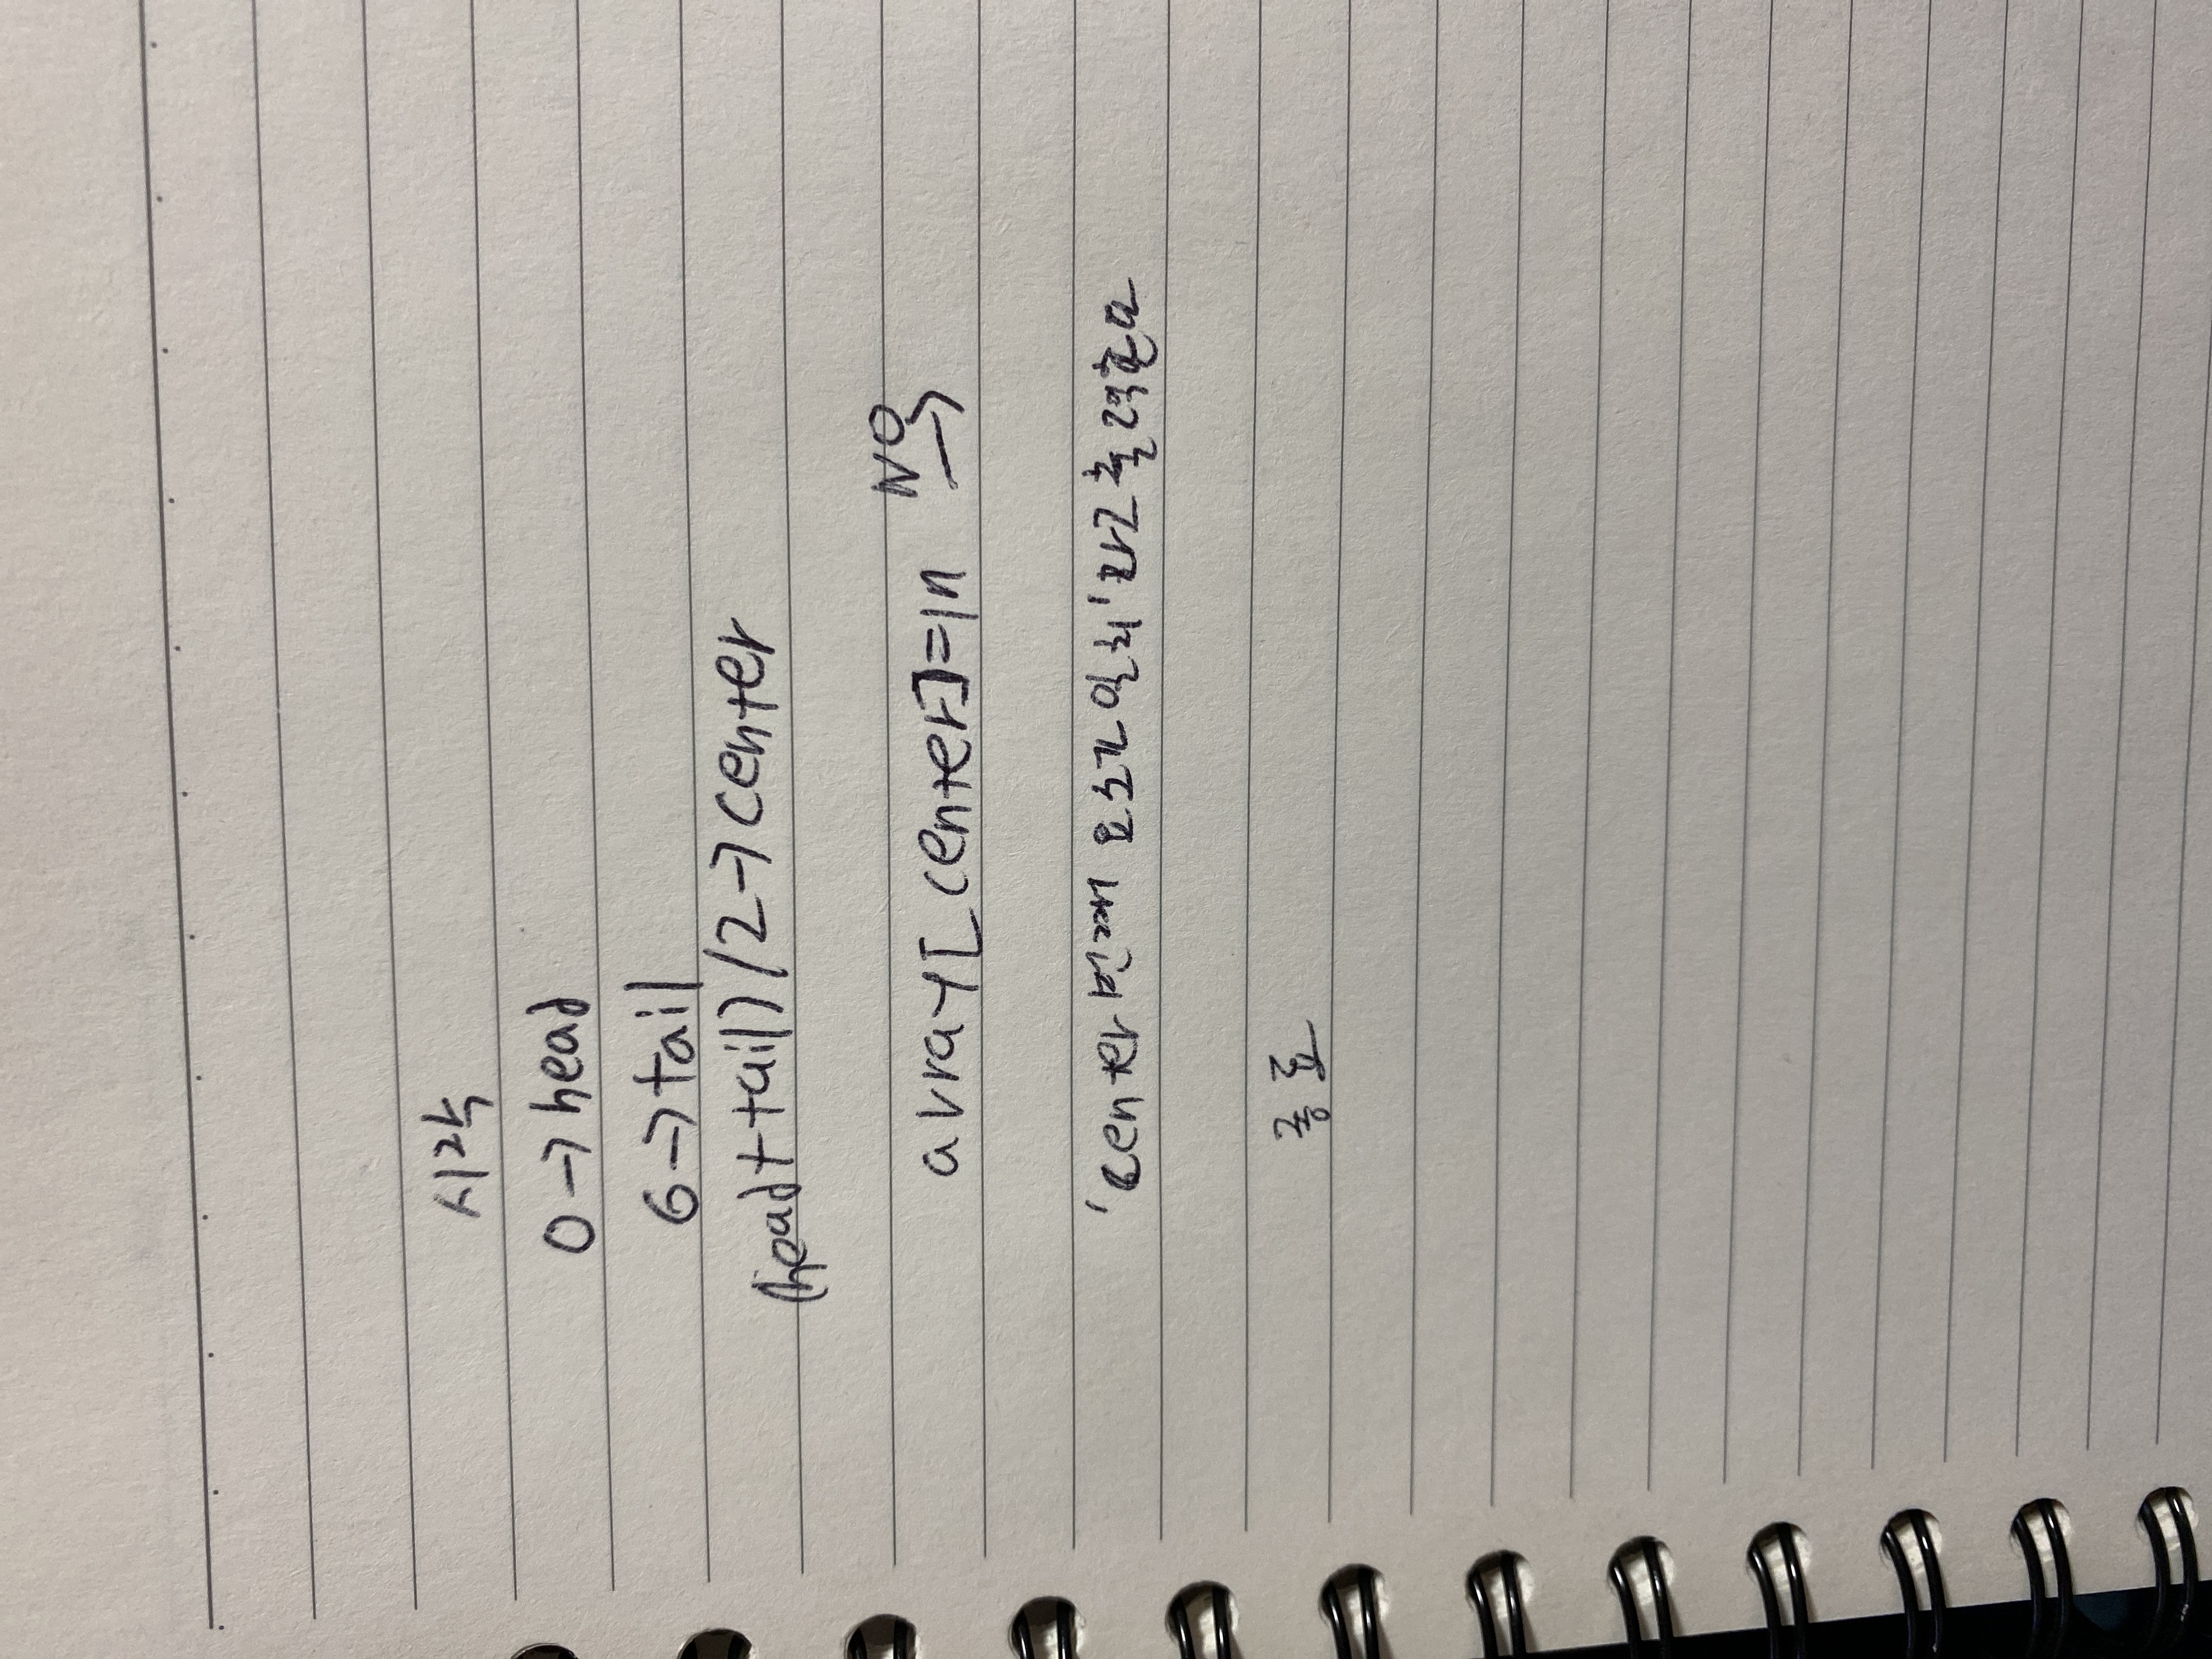 시작
0 → head
6 → tail
(head+tail)/2 → center
NO
array[center]=in →
'center번째 요소가 일치'라고 출력한다
종료